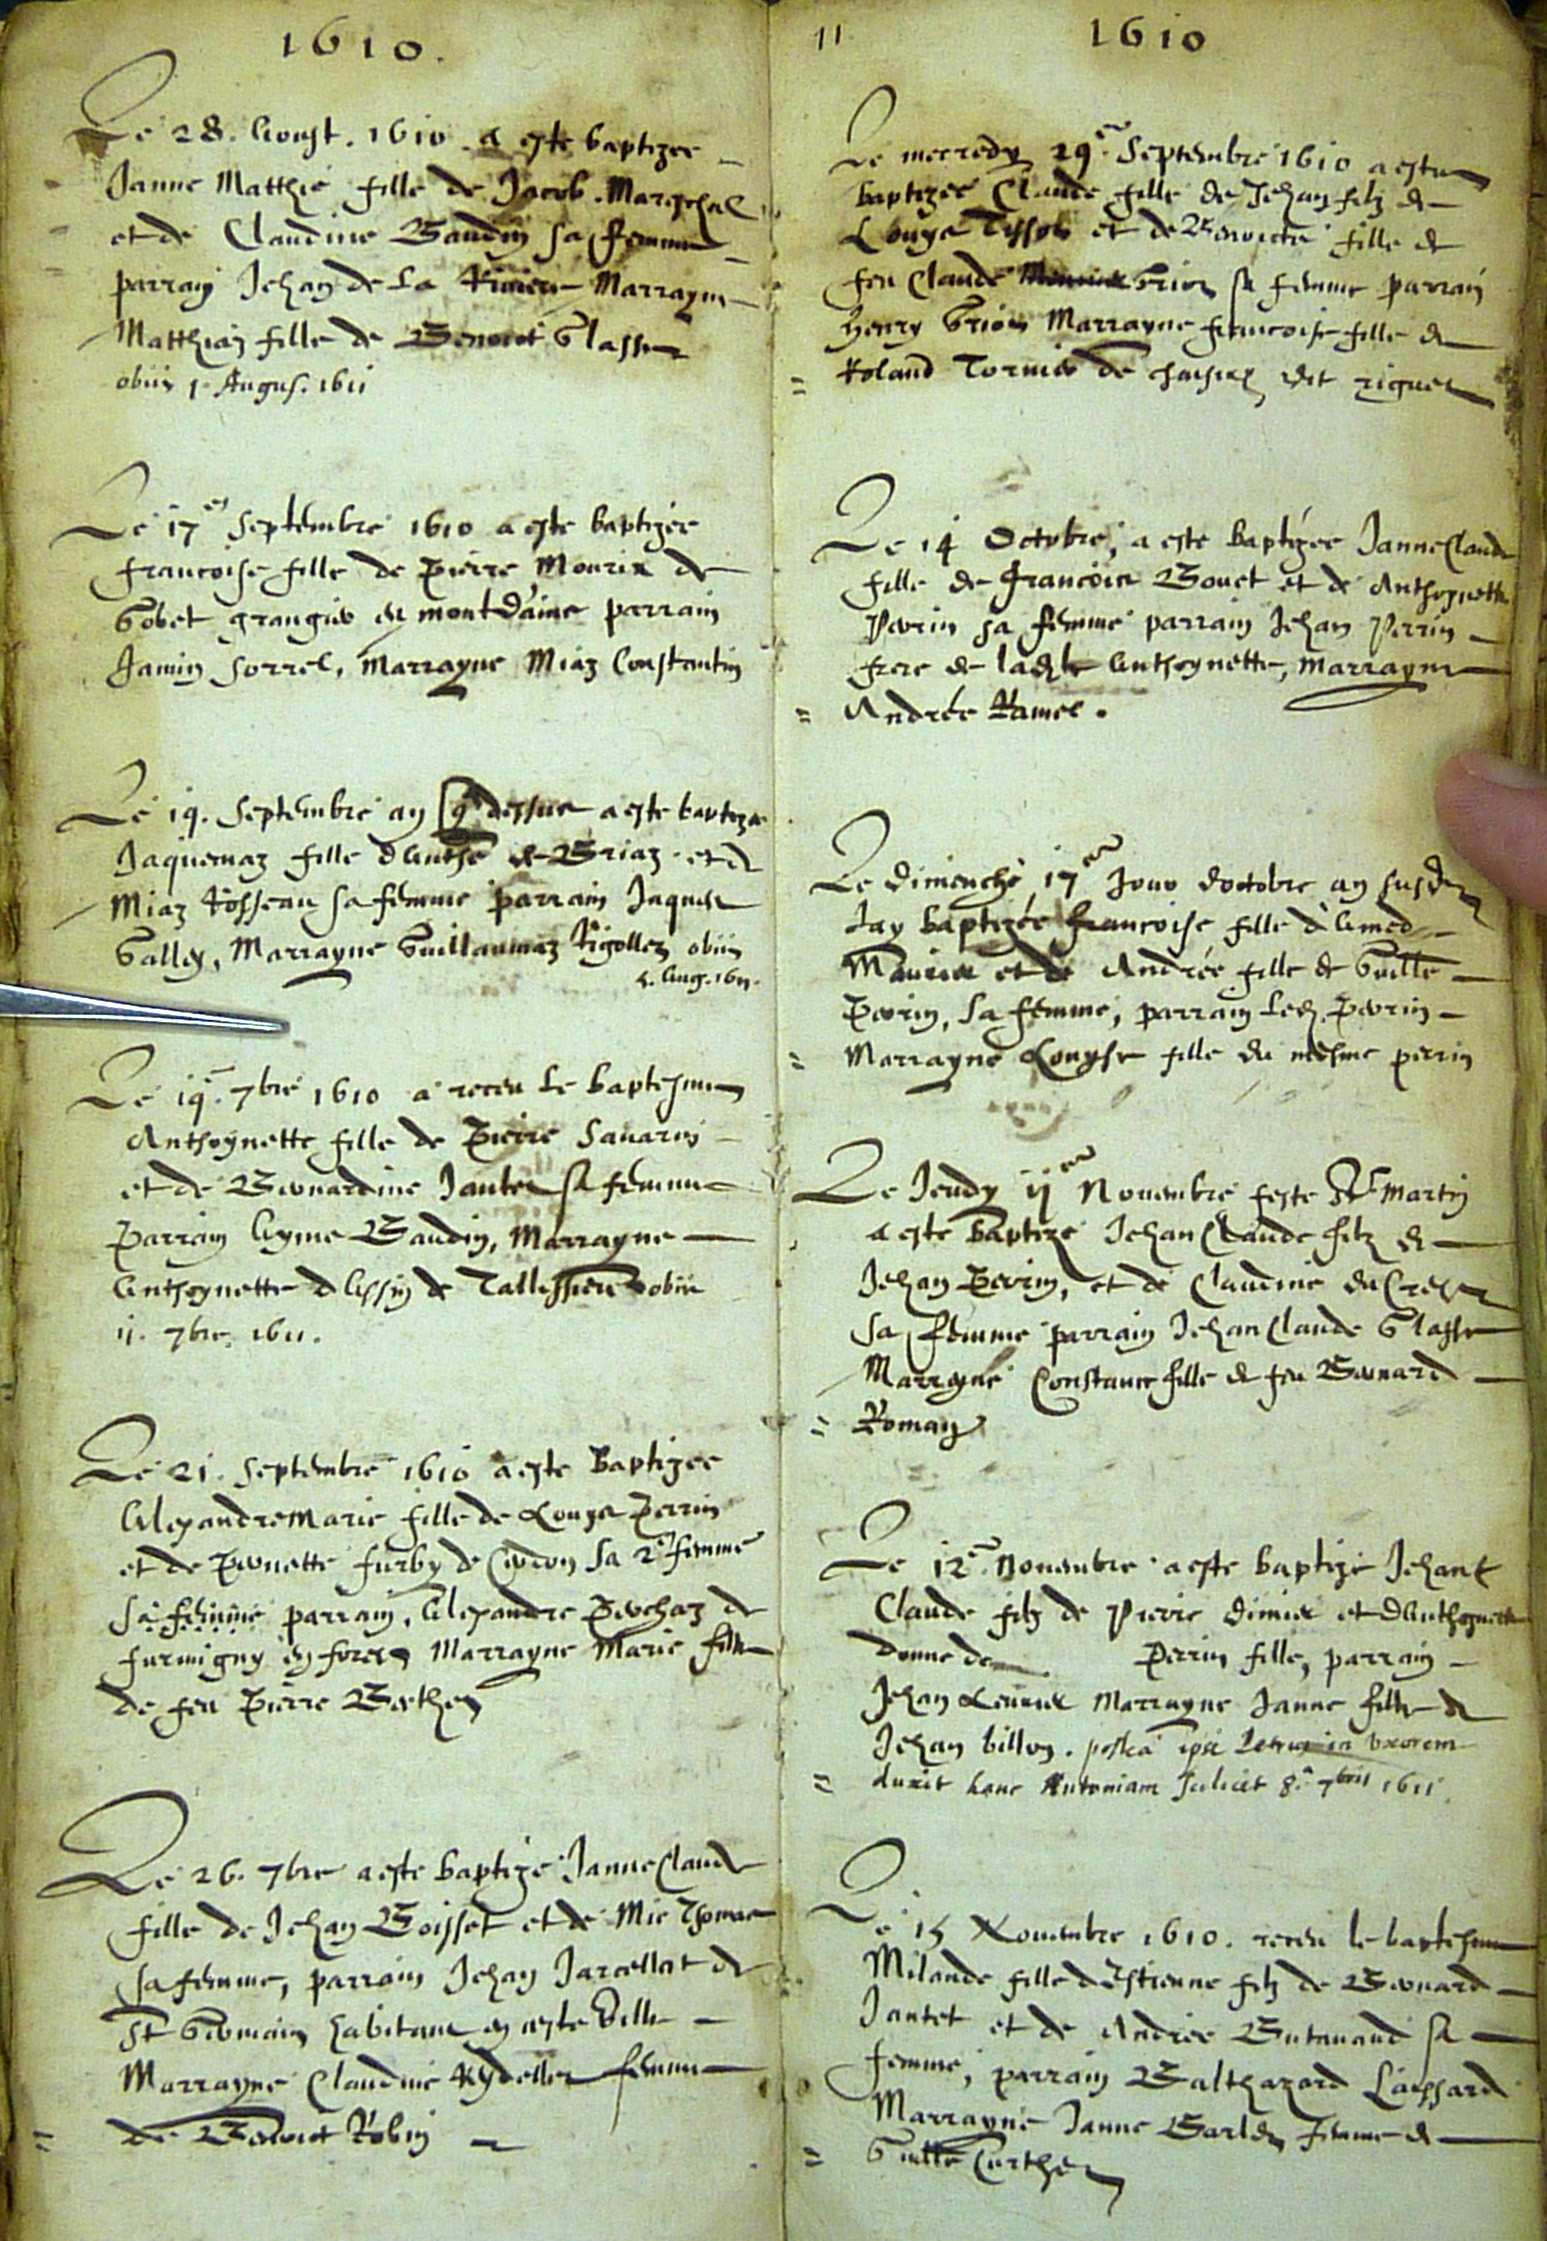 1610.
Le 28. Aoust. 1610. a este baptizee
Janne Matthie fille de Jacob. Mareschal
et de Claudine Baudin sa femme
parrain Jehan de la Riviere Marrayne
Matthian fille de Benoict Glasse
obiit 1. Augus. 1611
Le 17 Septembre 1610 a este baptizée
francoise fille de Pierre Mourix de
Gobet grangier en montdaine parrain
Jamin Sorrel, Marrayne Miaz Constantin
Le 19. Septembre an dessus a este baptizee
Jaquemaz fille dAnthe de Briaz et de
Miaz Rosseau sa femme parrain Jaques
Galley, Marrayne Guillaumaz Rigollet obiit
Aug. 1611.
Le 19. 7bre 1610 a receu le baptesme
Anthoynette fille de Pierre Savarin
et de Bernardine Jantet sa femme
Parrain Ayme Baudin, Marrayne
Anthoynette de Tallissieu obiit
11. 7bre. 1611.
Le 21. Septembre 1610 a este Baptizee
Alexandre Marie fille de Louys Perrin
et de Pernette furby de Cerdon sa 2e femme
sa femme parrain, Alexandre Perchaz de
furmigny en forez Marrayne Marie fille
de feu Pierre Berthet
Le 26. 7bre a este baptizé Janne Claude
fille de Jehan Boisset et de Mie Thomas
sa femme, parrain Jehan Jarcellat de
St Germain habitant en ceste Ville
Marrayne Claudine Rydellet femme
de Benoict Robin
11 1610
Le mecredy 29e Septembre 1610 a este
baptizee Claude fille de Jehan filz de
Louys Tissot et de Benoicte fille de
feu Claude Grion sa femme parrain
Henry Grion Marrayne francoise fille de
Roland Tornier de dit
Le 14 Octobre, a este baptizee Janne Claude
fille de francois Bonet et de Anthoynette
Perrin sa femme parrain Jehan Perrin
frere de ladte Anthoynette, Marrayne
Andrée Ramel.
Le Dimenche 17 Jour doctobre an susdt
Jay baptizée francoise fille dAmed
Maurix et de Andrée fille de Guille
Perrin, sa femme, parrain led. Perrin
Marrayne Louyse fille du mesme perrin
Le Jeudy 11 Novembre feste St Martin
a este baptizé Jehan Claude filz de
Jehan Perrin, et de Claudine du Crest
sa femme parrain Jehan Claude Glasse
Marrayne Constance fille de feu Bernard
Roman
Le 12e Novembre a este baptizé Jehan
Claude filz de Pierre et dAnthoynette
donne de Perrin fille, parrain
Jehan Marrayne Janne fille de
Jehan billon. postea ipse Petrus in uxorem
duxit hanc Antoniam scilicet 8.a 7bris 1611.
Le 15 Novembre 1610. receu le baptesme
Milande fille dEstienne filz de Bernard
Jantet et de Andrée Butavand sa
femme, parrain Balthazard
Marrayne Janne Barlet femme de
Guille Curthet